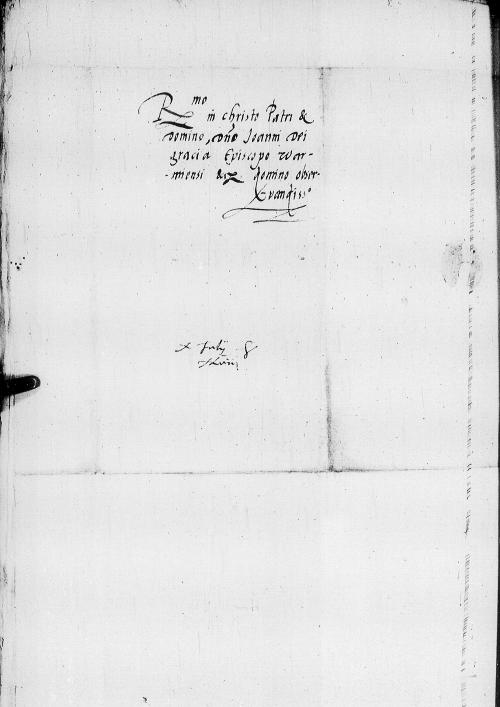 Rmo
in Christo Patri &
Domino, Dno Joanni Dei
gracia Episcopo War-
-miensi &c domino obser-
vandiss°
X Julij